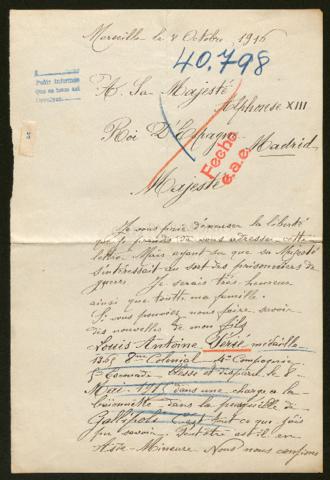 Marseille le 8 Octobre 1916
40.798
A. Sa Majesté
Alphonse XIII
Roi D'Espagne
Madrid
Fecho
e.a.e.
Majesté
Je vous prie d'excuser la liberté
que je prends de vous adresser cette
lettre. Mais ayant su que sa Majesté
s'intéressait au sort des prisonniers de
guerre. Je serais très heureux
ainsi que toute ma famille.
Si vous pouviez nous faire savoir
des nouvelles de mon fils
Louis Antoine médaille
Colonial 4e Compagnie
Escouade blessé et disparu le 8
Mai 1915 dans une charge a la
baionnette dans la presqu'ile de
Gallipoli c'est tout ce que j'ais
pu savoir. Peut être est il en
Asie-Mineure Nous nous confions